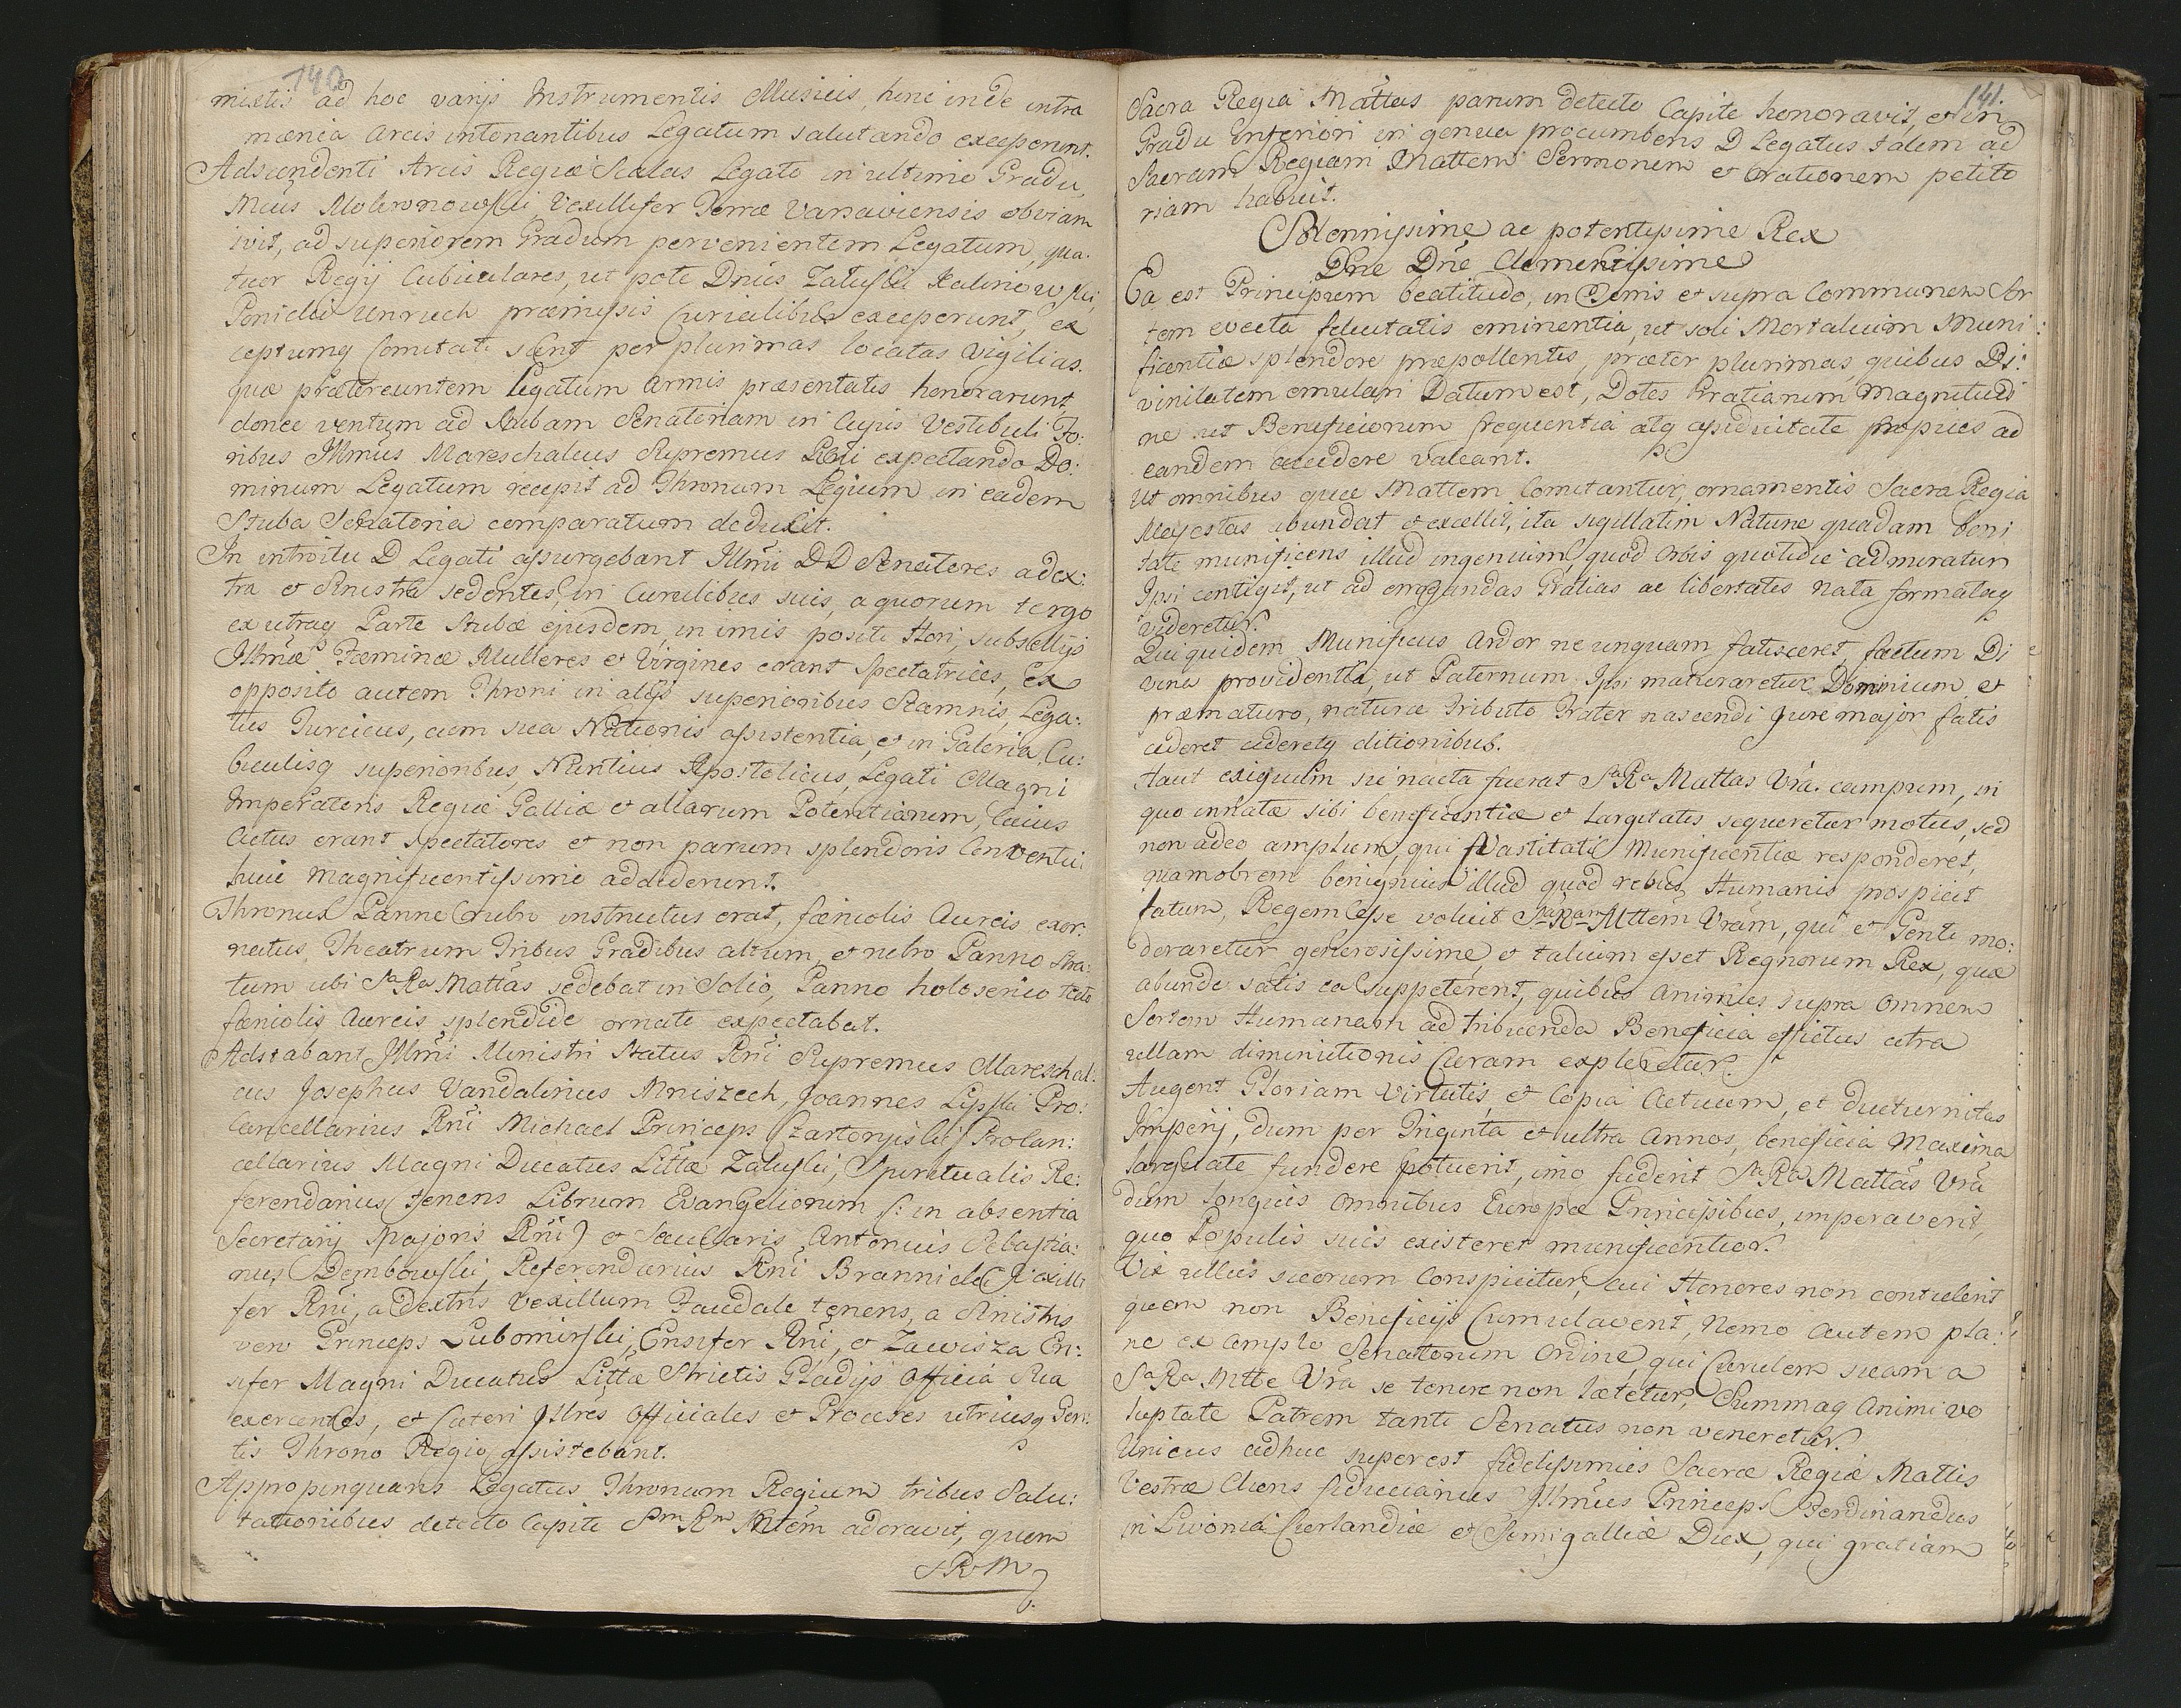 140
mixtis ad hoc varijs Instrumentis Musicis, hinc inde intra
mænia arcis intonantibus Legatum salutando exceperunt.
Adscendenti Arcis Regiæ Scalas Legato in ultimo Gradu,
Mcus Mokronowski Vexillifer Terræ Varsaviensis obviam
ivit, ad superiorem Gradum pervenientem Legatum, qua-
tuor Regij Cubiculares, ut pote Dnus Zaluski Kalinowski,
Poniński Unruch præmissis Curialibus exceperunt, ex
ceptumq Comitati sunt per plurimas locatas Vigilias.
quæ prætereuntem legatum armis præsentatis honorarunt
donec ventum ad Stubam Senatoriam in Cujus Vestibuli Fo:
ribus Illmus Mareschalcus Supremus Regni expectando Do:
minum Legatum recepit ad Thronum Regium in eadem
Stuba Senatoria comparatum deduxit.
In introitu D Legati assurgebant Illmi DD Senatores adex:
tra et Sinistra sedentes, in Curulibus suis, a quorum tergo
ex utraq Parte Stubæ ejusdem in imis positi Hori, subsellijs
Illmæ Fæminæ Mulieres et Virgines erant Spectatrices, Ex
opposito autem Throni in alijs superioribus Scamnis, Lega:
tus Turcicus, cum sua Nationis assistentia, et in Galeria, Cu:
biculisq superioribus, Nuntius Apostolicus, Legati Magni
Imperatoris Regiæ Galliæ et aliarum Potentiarum, Cuius
Actus erant Spectatores et non parum splendoris Conventui
huic magnificentissime addiderunt.
Thronus Panno Rubro instructus erat, fæniolis Aureis exor:
natus, Theatrum Tribus Gradibus altum, et rubro Panno stra:
tum ubi Sa Ra Mattas sedebat in Solio, Panno holoserico tecto
fæniolis Aureis splendide ornato expectabat.
Adstabant Illmi Ministri Status Rni Supremus Mareschal:
cus Josephus Vandalinus Mniszech, Joannes Lipski Pro:
Cancellarius Rni Michael Princeps Czartoryiski Procan:
cellarius Magni Ducatus Littæ Zaluski, Spiritualis Re:
ferendarius tenens Librum Evangeliorum (: in absentia
Secretarij Majoris Rni) et Sæcularis Antonius Sebastia:
nus Dembowski, Referendarius Rni Brannicki Vexilli
fer Rni, a dextris Vexillum Faudale tenens, a Sinistris
vero Princeps Lubomirski, Ensifer Rni, et Zawisza En:
sifer Magni Ducatus Littæ Strictis Gladijs Officia Sua
exercentes, et Cæteri Illres Officiales et Proceres utriusq Gen:
tis Throno Regio assistebant.
Appropinquans Legatus Thronum Regium tribus Salu:
tationibus detecto Capite Sm Rm Mttem adoravit, quem
SRM
141.
Sacra Regia Mattas parum detecto Capite honoravit, et in
Gradu Inferiori in genua procumbens D Legatus talem ad
Sacram Regiam Mattem Sermonem et Orationem petito
riam habuit.
Solennissime ac potentissime Rex
Dne Dne Clementissime
Ea est Principum beatitudo, in Terris et supra Communem Sor
tem evecta felicitatis eminentia, ut soli Mortalium Muni:
ficentiæ splendore præpollentes, præter plurimas, quibus Di:
vinitatem emulari Datum est, Dotes Gratiarum Magnitudi
ne aut Beneficiorum frequentia atq assiduitate propius ad
eandem accedere valeant.
Ut omnibus quæ Mattem Comitantur, ornamentis Sacra Regia
Majestas abundat et excellit, ita sigillatim Naturæ quadam boni
tate munificens illud ingenium, quod Orbis quotidie admiratur
Ipsi contigit, ut ad erogandas Gratias ac libertates nata formataq
videretur.
Qui quidem Munificus Ardor ne unquam fatisceret, factum Di
vina providentia, ut Paternum Ipsi maturaretur Dominium et
præmaturo, naturæ Tributo Frater nascendi Jure major fatis
cederet cederetq ditionibus.
Haut exiguum sic nacta fuerat Sa Ra Mattas Vra. campum, in
quo innatæ sibi beneficentiæ et Largitatis sequeretur motus, sed
non adeo amplum, qui Vastitati Munificentiæ responderet,
quamobrem benignius illud quod rebus Humanis prospicit
fatum, Regem Esse voluit Sam Ram Mttem Vram, qui et Genti mo:
deraretur generosissimæ, et talium esset Regnorum Rex, quæ
abunde satis ea suppeterent, quibus Animus supra omnem
Sortem Humanam ad tribuenda Beneficia effictus citra
ullam diminutionis Curam expleretur.
Augent Gloriam Virtutis, et Copia Actuum, et diuturnitas
Imperij, dum per Triginta et ultra Annos, beneficia Maxima
largitate fundere potuerit, imo fuderit Sa Ra Mattas Vra
dum longius Omnibus Europæ Principibus, imperaverit,
quo Populis suis existeret munificentior.
Vix ullus suorum Conspicitur, cui Honores non contulerit
quem non Beneficijs Cumulaverit, Nemo autem pla:
ne ex amplo Senatorum Ordine, qui Curulem suam a
Sa Ra Mtte Vra se tenere non lætetur, Summaq Animi vo
luptate Patrem tanti Senatus non veneretur.
Unicus adhuc superest fidelissimus Sacræ Regiæ Mattis
Vestræ Cliens fiduciarius Illmus Princeps Ferdinandus
in Livonia Curlandiæ et Semigalliæ Dux, qui gratiam